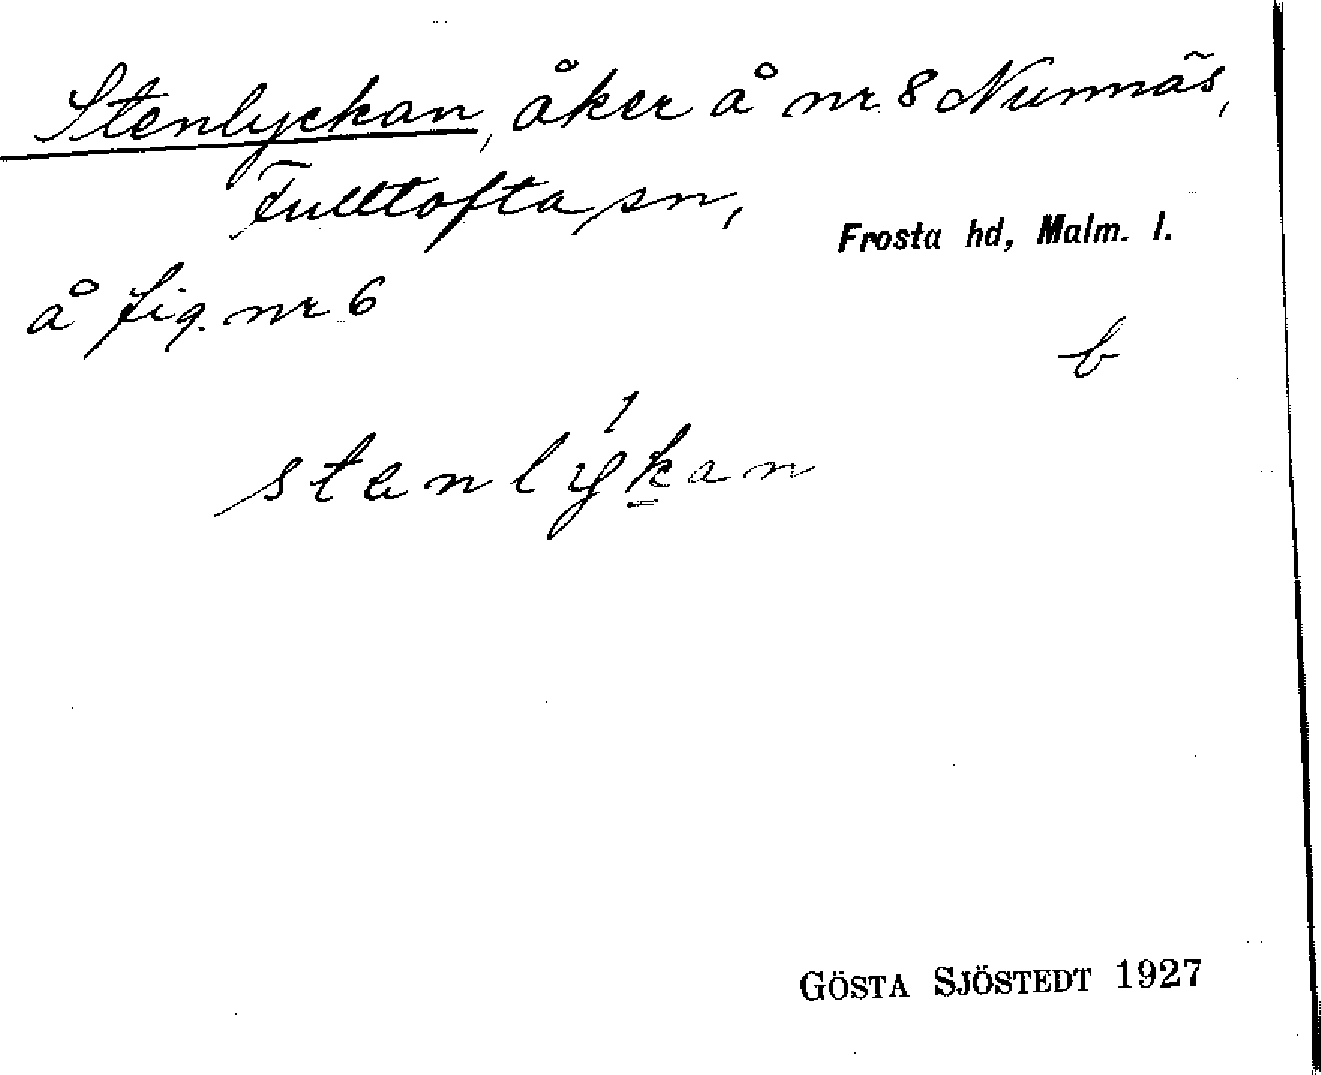 Stenlyckan, åker å nr 8 Nunnäs,
Fulltofta sn,
Frosta hd, Malm. l.
å fig. nr 6
b
stenlýkan
GÖSTA SJÖSTEDT 1927